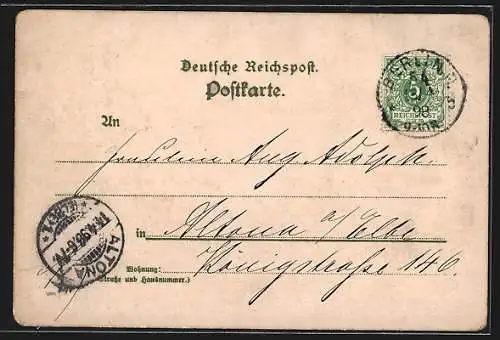 Deutsche Reichspost.
Postkarte.
BERLIN
5
REICHSPOST
An
Fräulein Aug. Adolph.
in Altona a/Elbe
Königstraße 146.
ALTONA
Wohnung:
(Straße und Hausnummer.)